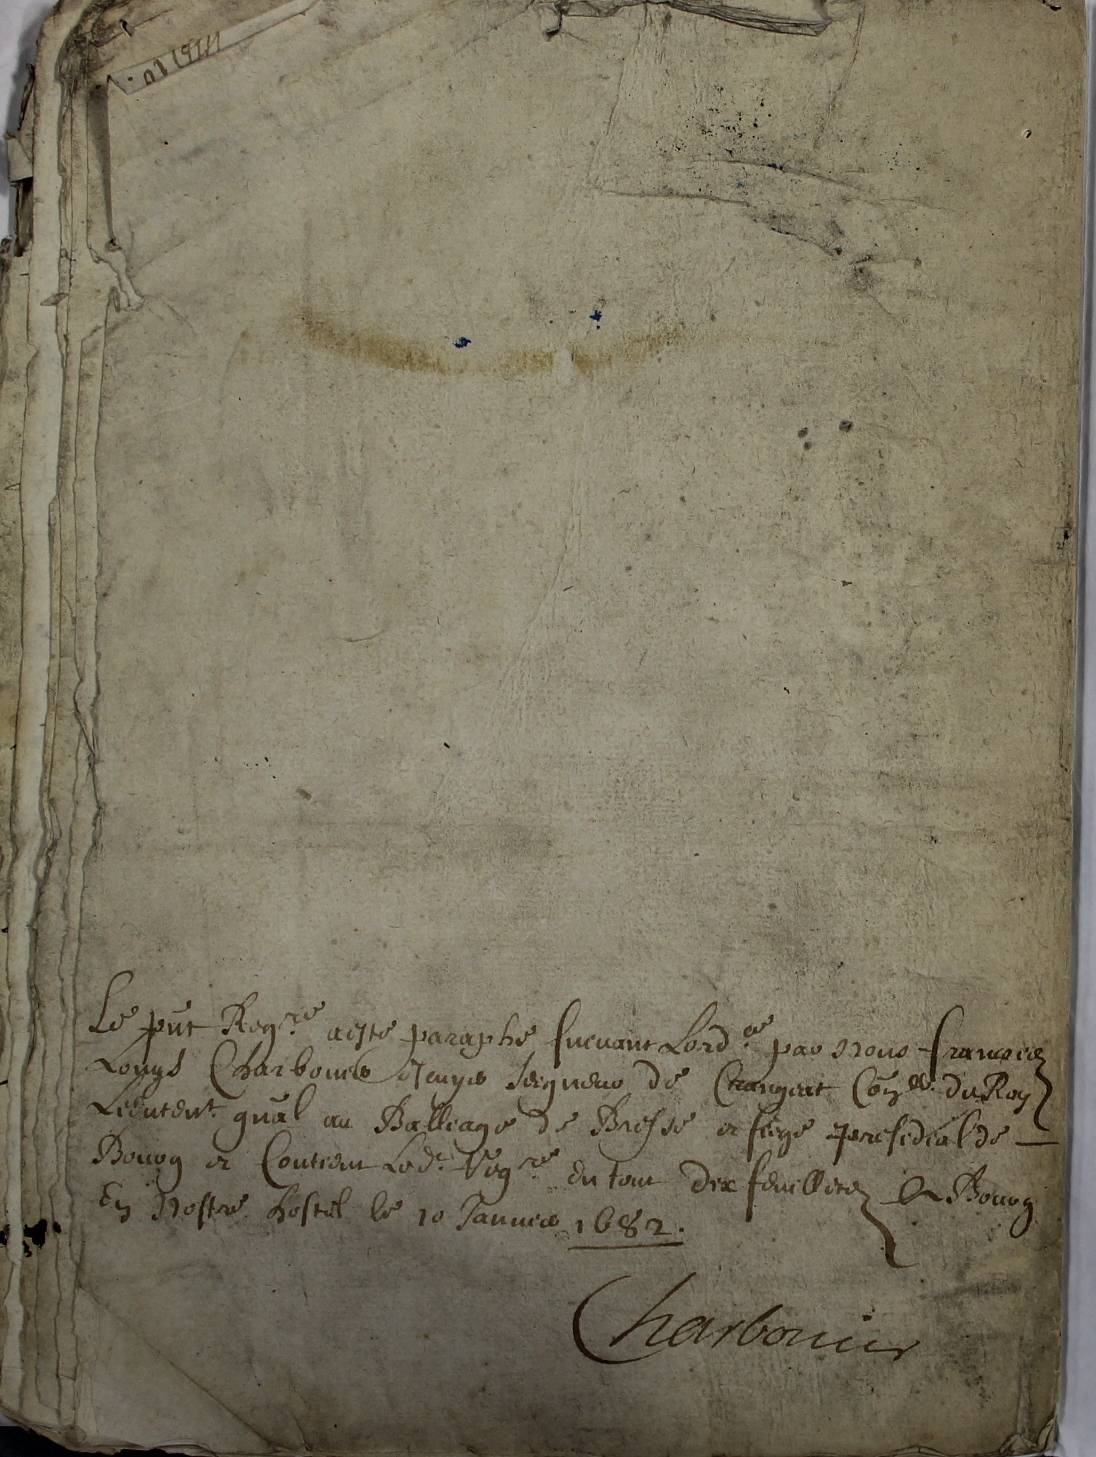 Le pnt Reg.re aesté paraphé suevant Lord.ce par nous françois
Louys Charbonnier escuyer seigneur de Crangeat Con.er du Roy
Lieutent gnãl au Balliage de Bresse et siege presedial de
Bourg et Contient Led.t Reg.re en tout dix feuilletz A Bourg
En Nostre hostel le 10 Janvier 1682.
Charbonier